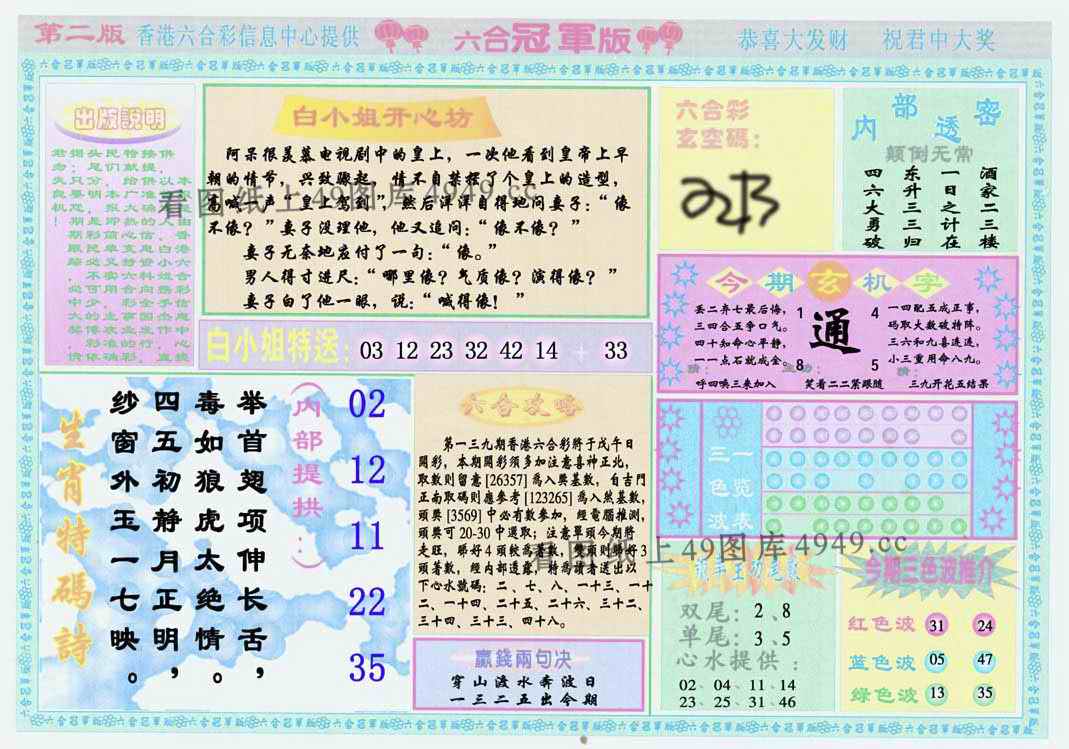 第二版
香港六合彩信息中心提供
六合冠軍版
恭喜大发财
祝君中大奖
出版説明
白小姐开心坊
阿呆很羡慕电视剧中的皇上，一次他看到皇帝上早
朝的情节，兴致骤起，情不自禁摆了个皇上的造型，
高喊一声“皇上驾到”，然后洋洋自得地问妻子：“像
不像？”妻子没理他，他又追问：“像不像？”
妻子无奈地应付了一句：“像。”
男人得寸进尺：“哪里像？气质像？演得像？”
妻子白了他一眼，说：“喊得像！”
看图纸上49图库4949.cc
白小姐特送：03 12 23 32 42 14 + 33
六合彩
玄空碼：
内部透密
颠倒无常
酒家二三楼
一日之计在
东升三三归
四六大勇破
今期玄机字
丢二弃七最后悔，
三四合五争口气。
四十知命心平静，
一一点石就成金。
呼四唤三来加入
1
4
通
8
5
笑看二二紧跟随
一四配五成正事，
码取大数破特阵。
三六和九喜连连，
小三重用命八九。
三九开花五结果
生肖特碼詩
举首翅项伸长舌，
毒如狼虎太绝情。
四五初静月正明，
纱窗外玉一七映。
（内部提拱：）
02
12
11
22
35
六合攻略
第一三九期香港六合彩將于戊午日
開彩，本期開彩須多加注意喜神正北，
取數則留意[26357]為入奬基數，自吉門
正南取碼則應參考[123265]為入然基數，
頭奬[3569]中必有數參加，經電腦推測，
頭奬可20-30中選取；注意單頭今期將
走旺，睇好4頭較為著數，雙頭則睇好3
頭著數，經内部透露，特為讀者送出以
下心水號碼：二、七、八、一十三、一十
二、一十四、二十五、二十六、三十二、
三十四、三十三、四十八。
看图纸上49图库4949.cc
贏錢兩句决
穿山渡水奔波日
一三二五出今期
三色波
一览表
双尾：2、8
单尾：3、5
心水提供：
02、04、11、14
23、25、31、46
今期三色波推介
红色波 31 24
蓝色波 05 47
绿色波 13 35